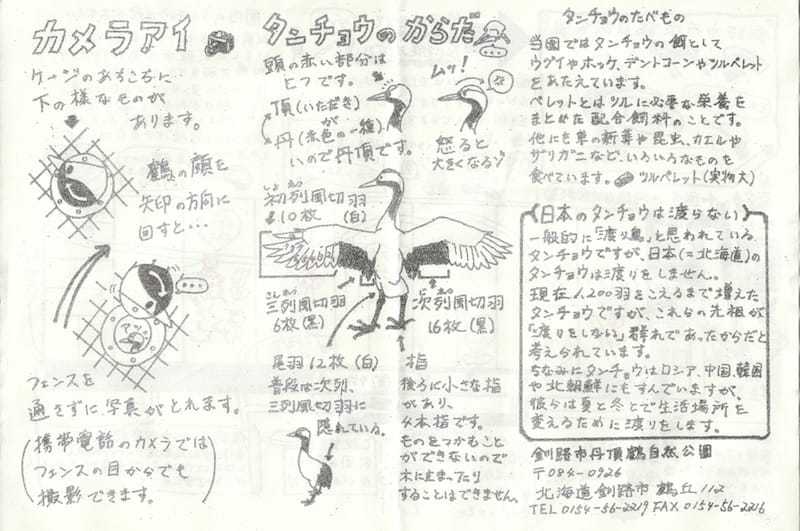 カメラアイ
ケージのあちこちに…
下の様なものが
あります。
鶴の顔を
矢印の方向に
回すと…
フェンスを
通さずに写真がとれます。
携帯電話のカメラでは
フェンスの目からでも
撮影できます。
タンチョウのからだ
頭の赤い部分は
ヒフです。
頂(いただき)
が
丹(赤色の一種)
いので丹頂です。
ムッ!
怒ると
大きくなるゾ
初列風切羽
10枚 (白)
三列風切羽
6枚(黒)
次列風切羽
16枚(黒)
尾羽12枚(白)
普段は次列、
三列風切羽に
隠れている。
指
後ろに小さな指
があり、
4本指です。
ものをつかむこと
ができないので
木に止まったり
することはできません。
タンチョウのたべもの
当園ではタンチョウの餌として
ウグイやホッケ、デントコーンやツルペレット
をあたえています。
ペレットとはツルに必要な栄養を
まとめた配合飼料のことです。
他にも草の新芽や昆虫、カエルや
ザリガニなど、いろいろなものを
食べています。 ツルペレット(実物大)
日本のタンチョウは渡らない
一般的に「渡り鳥」と思われている
タンチョウですが、日本(=北海道)の
タンチョウは渡りをしません。
現在1,200羽をこえるまで増えた
タンチョウですが、これらの先祖が
「渡りをしない」群れであったからだと
考えられています。
ちなみにタンチョウはロシア、中国、韓国
や北朝鮮にもすんでいますが、
彼らは夏と冬とで生活場所を
変えるために渡りをします。
釧路市丹頂鶴自然公園
〒084-0926
北海道釧路市鶴丘112
TEL 0154-56-2219 FAX 0154-56-2216